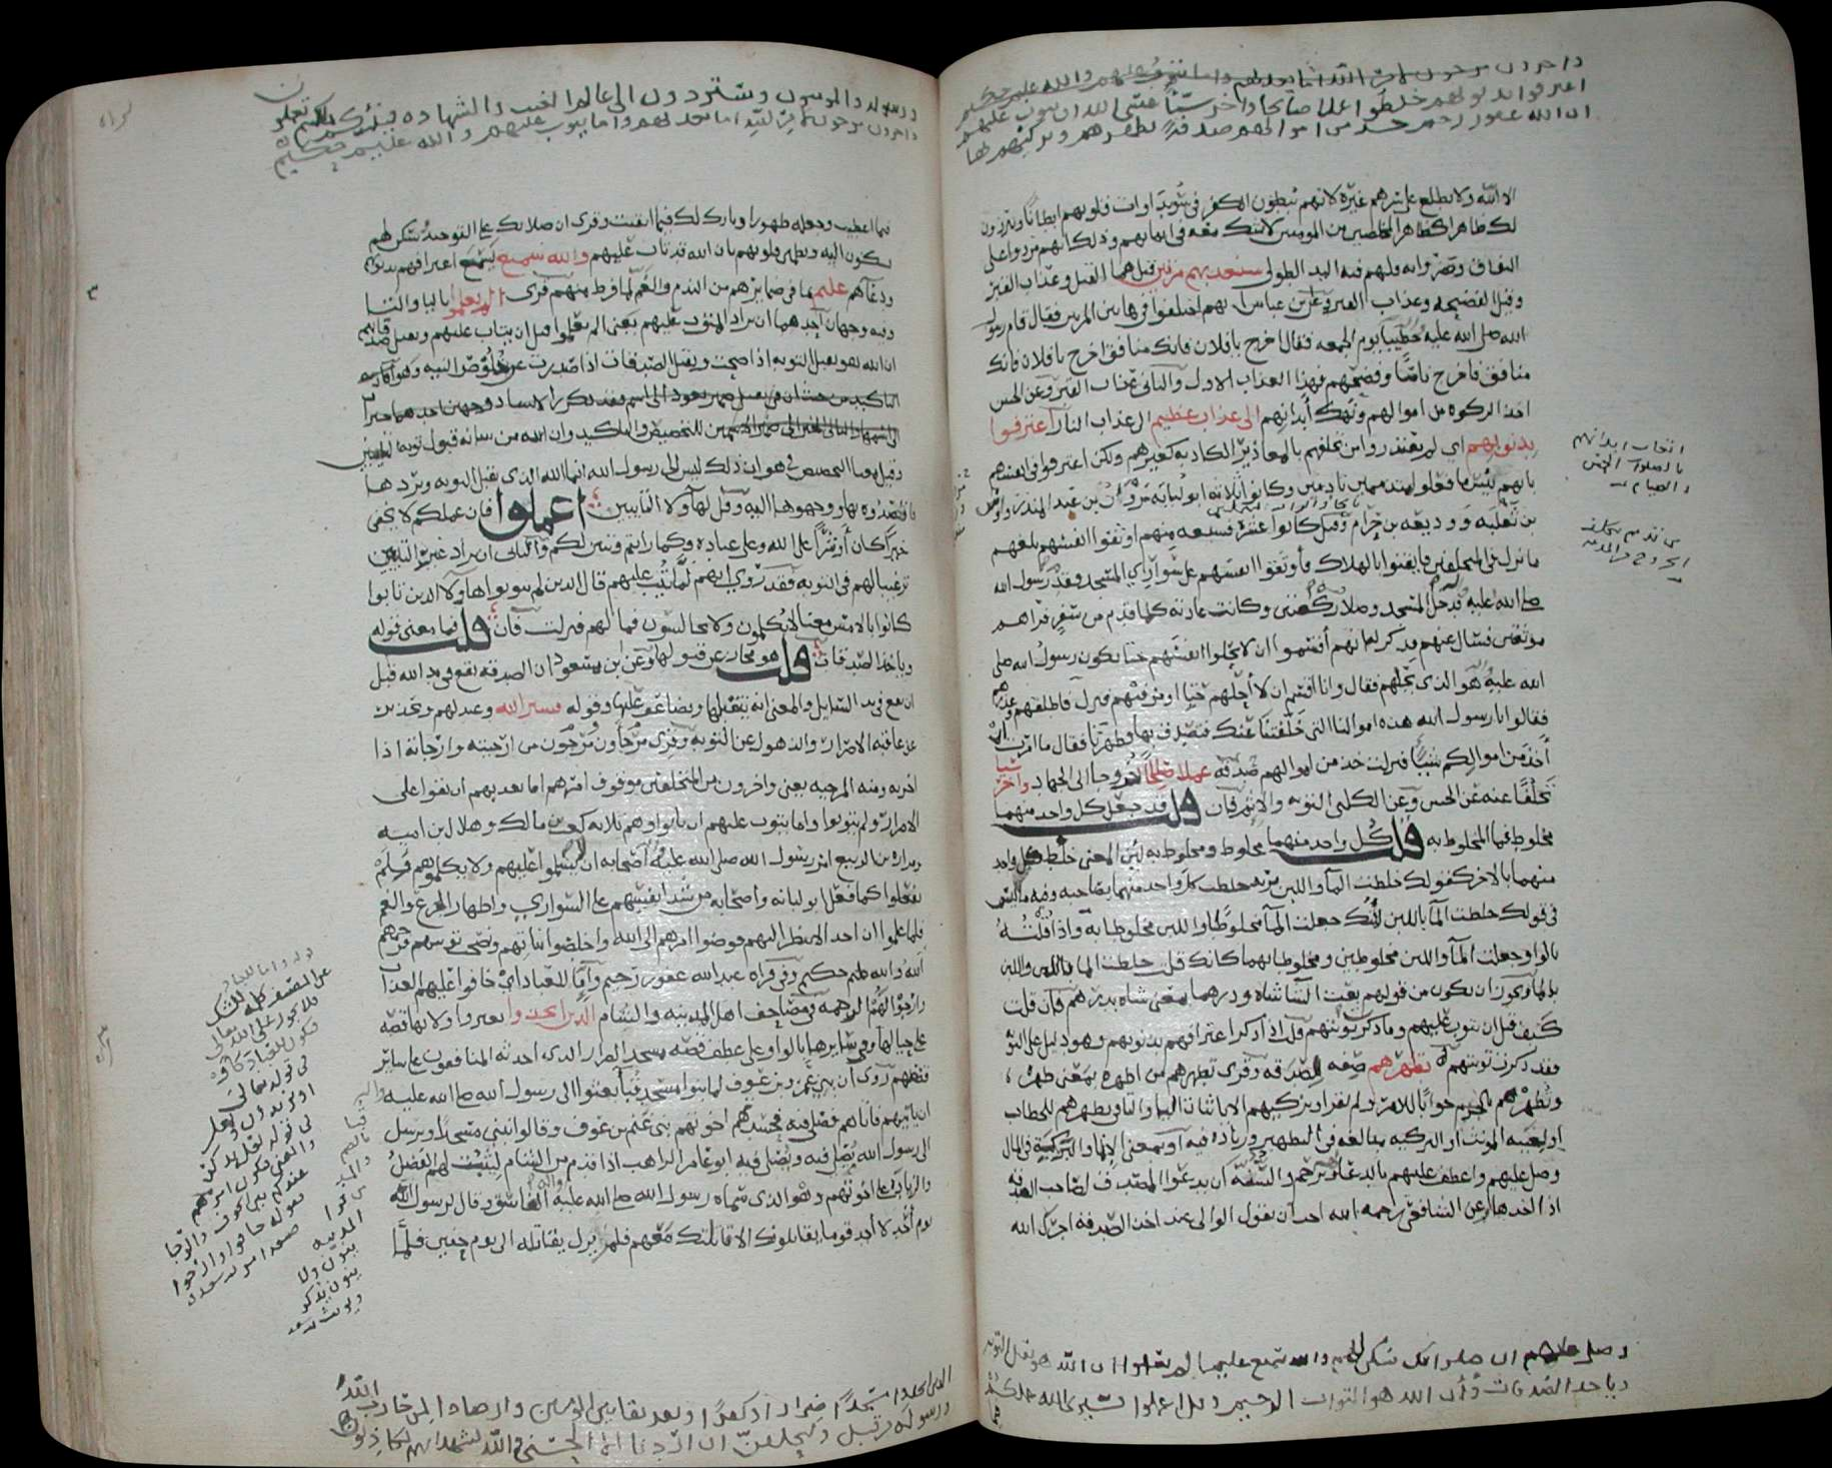 واخرون مرجون لامر الله اما يعذبهم واما يتوب عليهم والله عليم حكيم
اعترفوا بذنوبهم خلطوا عملا صالحا واخر سيئا عسى الله ان يتوب عليهم
ان الله غفور رحيم خذ من اموالهم صدقة تطهرهم وتزكيهم بها
الا الله ولا يطلع على سرهم غيره لانهم يبطنون الكفر في سويداوات قلوبهم ابطانا ويبرزون
لك ظاهرا كظاهر المخلصين من المومنين لا تشك معه في ايمانهم وذلك انهم مردوا على
النفاق وضروا به ولهم فيه اليد الطولى سنعذبهم مرتين قيل هما القتل وعذاب القبر
وقيل الفضيحة وعذاب القبر وعن ابن عباس انهم اختلفوا في هاتين المرتين فقال قام رسول
الله صلى الله عليه خطيبا يوم الجمعه فقال اخرج يا فلان فانك منافق اخرج يا فلان فانك
منافق فاخرج ناسا وفضحهم فهذا العذاب الاول والثاني عذاب القبر وعن الحسن
اخذ الزكوه من اموالهم ونهك ابدانهم الى عذاب عظيم الى عذاب النار اعترفوا
بذنوبهم اي لم يعتذروا من تخلفهم بالمعاذير الكاذبه كغيرهم ولكن اعترفوا على انفسهم
بانهم بئس ما فعلوا متذممين نادمين وكانوا ثلاثه ابو لبابه مروان بن عبد المنذر واوس
بن ثعلبه ووديعه بن حزام وقيل كانوا عشره فسبعه منهم اوثقوا انفسهم بلغهم
ما نزل في المتخلفين فايقنوا بالهلاك فاوثقوا انفسهم على سواري المسجد فقدم رسول الله
صلى الله عليه فدخل المسجد وصلى ركعتين وكانت عادته كلما قدم من سفر فراهم
موثقين فسال عنهم فذكر له انهم اقسموا ان لا يحلوا انفسهم حتى يكون رسول الله صلى
الله عليه هو الذي يحلهم فقال وانا اقسم ان لا احلهم حتى اومر فيهم فنزلت فاطلقهم وعذرهم
فقالوا يا رسول الله هذه اموالنا التي خلفتنا عنك فتصدق بها وطهرنا فقال ما امرت ان
اخذ من اموالكم شيئا فنزلت خذ من اموالهم صدقه عملا صالحا خروجا الى الجهاد واخر سيئا
تخلفا عنه عن الحسن وعن الكلبي التوبه والاثم فان قلت قد جعل كل واحد منهما
مخلوطا فما المخلوط به قلت كل واحد منهما مخلوط ومخلوط به لان المعنى خلط كل واحد
منهما بالاخر كقولك خلطت الما واللبن تريد خلطت كل واحد منهما بصاحبه وفيه ما ليس
في قولك خلطت الما باللبن لانك جعلت الما مخلوطا واللبن مخلوطا به واذا قلته
بالواو جعلت الما واللبن مخلوطين ومخلوطا بهما كانك قلت خلطت الما باللبن واللبن
بالما ويجوز ان يكون من قولهم بعت الشا شاه ودرهما بمعنى شاه بدرهم فان قلت
كيف قيل ان يتوب عليهم وما ذكرت توبتهم قلت اذا ذكر اعترافهم بذنوبهم وهو دليل على التوبه
فقد ذكرت توبتهم تطهرهم صفه للصدقه وقرى تطهرهم من اطهره بمعنى طهره
وتطهرهم بالجزم جوابا للامر ولم يقرا وتزكيهم الا باثبات اليا والتا في تطهرهم للخطاب
او لغيبه المونث والتزكيه مبالغه في التطهير وزياده فيه او بمعنى الانما والبركه في المال
وصل عليهم واعطف عليهم بالدعا لهم وترحم والسنه ان يدعوا المصدق لصاحب الصدقه
اذا اخذها وعن الشافعي رحمه الله احب ان يقول الوالي عند اخذ الصدقه اجرك الله
وصل عليهم ان صلواتك سكن لهم والله سميع عليم الم يعلموا ان الله هو يقبل التوبه
وياخذ الصدقات وان الله هو التواب الرحيم وقل اعملوا فسيرى الله عملكم
اتعاب ابدانهم
بالصلوات الخمس
والصيام
ورسوله والمومنون وستردون الى عالم الغيب والشهاده فينبئكم بما كنتم تعملون
واخرون مرجون لامر الله اما يعذبهم واما يتوب عليهم والله عليم حكيم
فيما اعطيت وجعله طهورا وبارك لك فيما ابقيت وقرى ان صلاتك على التوحيد سكن لهم
يسكنون اليه وتطمئن قلوبهم بان الله قد تاب عليهم والله سميع يسمع اعترافهم بذنوبهم
ودعاهم عليم بما في ضمايرهم من الندم والغم لما فرط منهم قرى الم يعلموا باليا والتا
وفيه وجهان احدهما ان يراد المتوب عليهم يعنى الم يعلموا قبل ان يتاب عليهم وتقبل صدقاتهم
ان الله هو يقبل التوبه اذا صحت ويقبل الصدقات اذا صدرت عن خلوص النيه وهو
للتخصيص والتاكيد وان الله من شانه قبول توبه التايبين
وقيل معنا التخصيص في هو ان ذلك ليس الى رسول الله انما الله الذي يقبل التوبه ويردها
فاقصدوه بها ووجهوها اليه وقل لهاولا التايبين اعملوا فان عملكم لا يخفى
خيرا كان او شرا على الله وعلى عباده كما رايتم وتبين لكم والثاني ان يراد غير التايبين
ترغيبا لهم في التوبه فقد روي انهم لما تيب عليهم قال الذين لم يتوبوا هاولا الذين تابوا
كانوا بالامس معنا لا يكلمون ولا يجالسون فما لهم فنزلت فان قلت فما معنى قوله
وياخذ الصدقات قلت هو مجاز عن قبوله لها وعن ابن مسعود ان الصدقه تقع في يد الله قبل
ان تقع في يد السايل والمعنى انه يتقبلها ويضاعف عليها وقوله فسيرى الله وعيد لهم وتحذير
عن عاقبه الاصرار والذهول عن التوبه وقرى مرجاون ومرجون من ارجيته وارجاته اذا
اخرته ومنه المرجيه يعنى واخرون من المتخلفين موقوف امرهم اما يعذبهم ان بقوا على
الاصرار ولم يتوبوا واما يتوب عليهم ان تابوا وهم ثلاثه كعب بن مالك وهلال ابن اميه
ومراره بن الربيع امر رسول الله صلى الله عليه اصحابه ان لا يسلموا عليهم ولا يكلموهم فلم
يفعلوا كما فعل ابو لبابه واصحابه من شد انفسهم على السواري واظهار الجزع والغم
فلما علموا ان احدا لا ينظر اليهم فوضوا امرهم الى الله واخلصوا نياتهم ونصحت توبتهم فرحمهم
الله والله عليم حكيم وفي قراه عبد الله غفور رحيم واما للعباد اي خافوا عليهم العذاب
وارجوا لهم الرحمه في مصاحف اهل المدينه والشام الذين اتخذوا بغير واو لانها قصه
على حيالها وفي سايرها بالواو على عطف قصه مسجد الضرار الذي احدثه المنافقون على ساير
قصصهم روى ان بني عمرو بن عوف لما بنوا مسجد قبا بعثوا الى رسول الله صلى الله عليه
ان ياتيهم فاتاهم فصلى فيه فحسدهم اخوتهم بني غنم بن عوف وقالوا نبني مسجدا ونرسل
الى رسول الله يصلي فيه ويصلي فيه ابو عامر الراهب اذا قدم من الشام ليثبت لهم الفضل
والزياده على اخوتهم وهو الذي سماه رسول الله صلى الله عليه الفاسق وقال لرسول الله
يوم احد لا اجد قوما يقاتلونك الا قاتلتك معهم فلم يزل يقاتله الى يوم حنين فلما
الذين اتخذوا مسجدا ضرارا وكفرا وتفريقا بين المومنين وارصادا لمن حارب الله
ورسوله من قبل وليحلفن ان اردنا الا الحسنى والله يشهد انهم لكاذبون